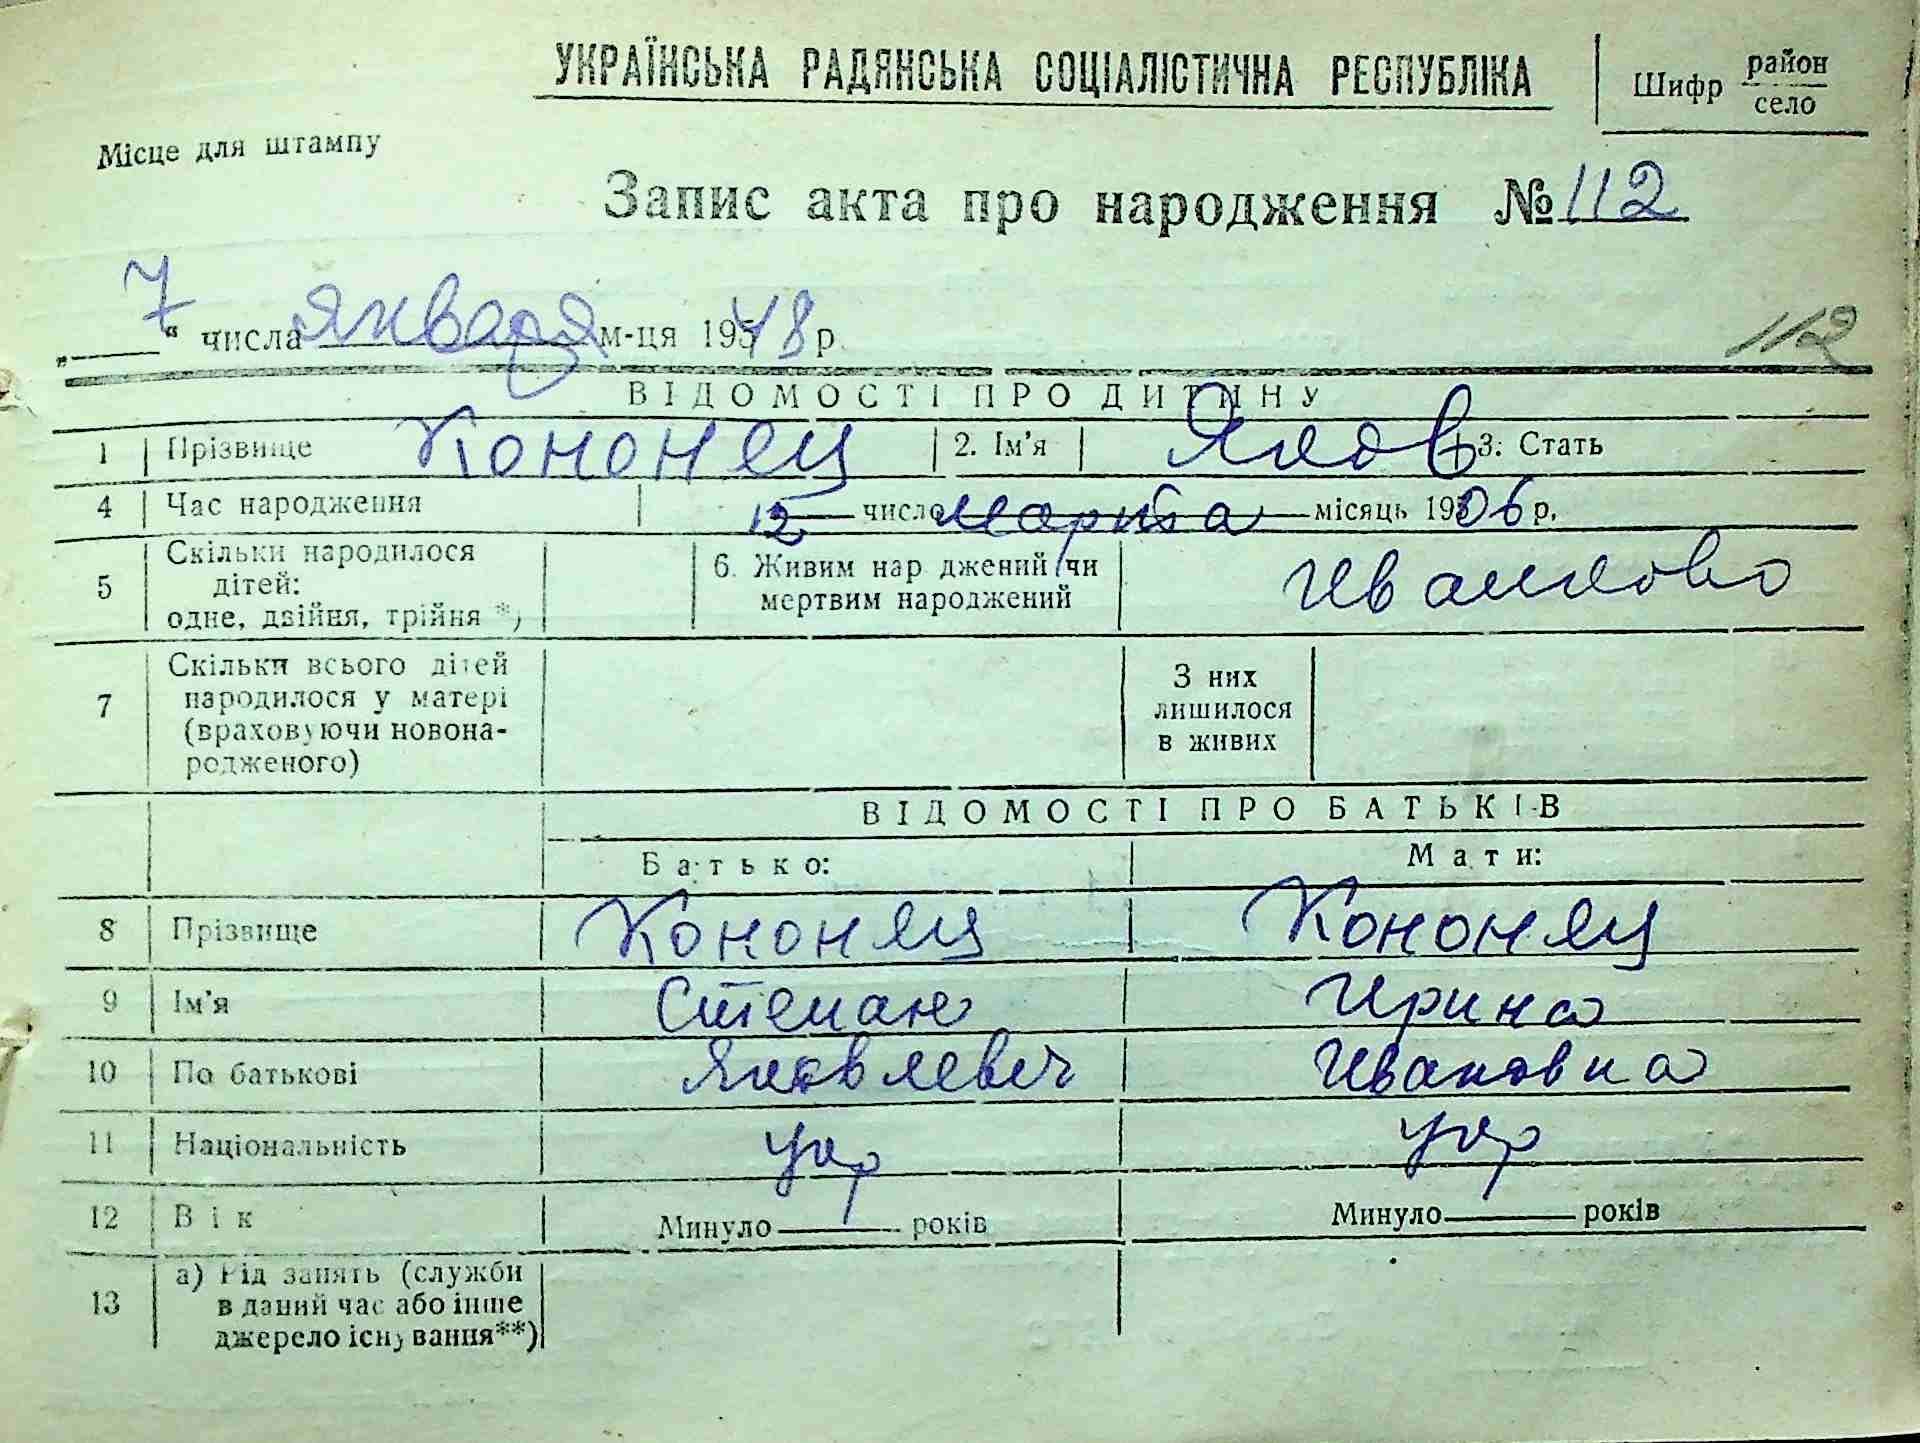 УКРАЇНСЬКА РАДЯНСЬКА СОЦІАЛІСТИЧНА РЕСПУБЛІКА
Шифр район
село
Місце для штампу
Запис акта про народження № 112
„ 7 “ числа января м-ця 1948 р.
112
ВІДОМОСТІ ПРО ДИТИНУ
1 Прізвище Кононец 2. Ім’я Яков 3: Стать
4 Час народження 12 число марта місяць 1906 р.
5 Скільки народилося дітей: одне, двійня, трійня *) 6. Живим нар джений чи мертвим народжений Иванково
7 Скільки всього дітей народилося у матері (враховуючи новонародженого) З них лишилося в живих
ВІДОМОСТІ ПРО БАТЬКІВ
Батько: Мати:
8 Прізвище Кононец Кононец
9 Ім’я Степан Ирина
10 По батькові Яковлевич Ивановна
11 Національність укр укр
12 Вік Минуло років Минуло років
13 а) Рід занять (служби
в даний час або інше
джерело існування**)